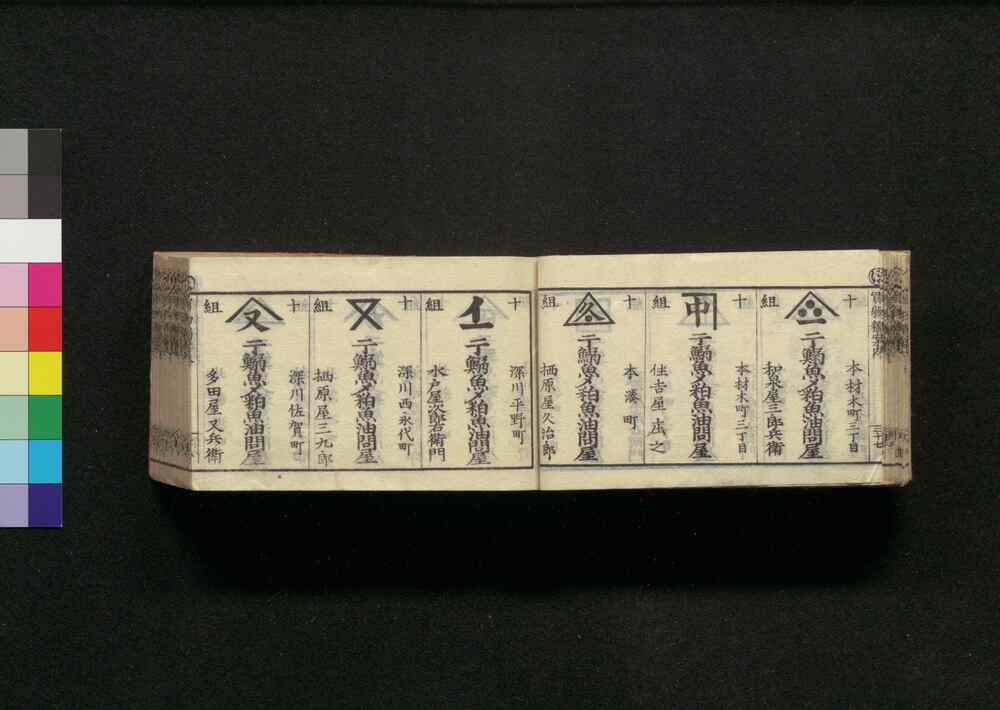 十
組
本材木町三丁目
干鰯魚〆粕魚油問屋
和泉屋三郎兵衛
十
組
中
本材木町三丁目
干鰯魚〆粕魚油問屋
住吉屋
十
組
本湊町
干鰯魚〆粕魚油問屋
栖原屋久治郎
十
組
深川平野町
干鰯魚〆粕魚油問屋
水戸屋次郎右衛門
十
組
深川西永代町
干鰯魚〆粕魚油問屋
栖原屋三九郎
十
組
又
深川佐賀町
干鰯魚〆粕魚油問屋
多田屋又兵衛